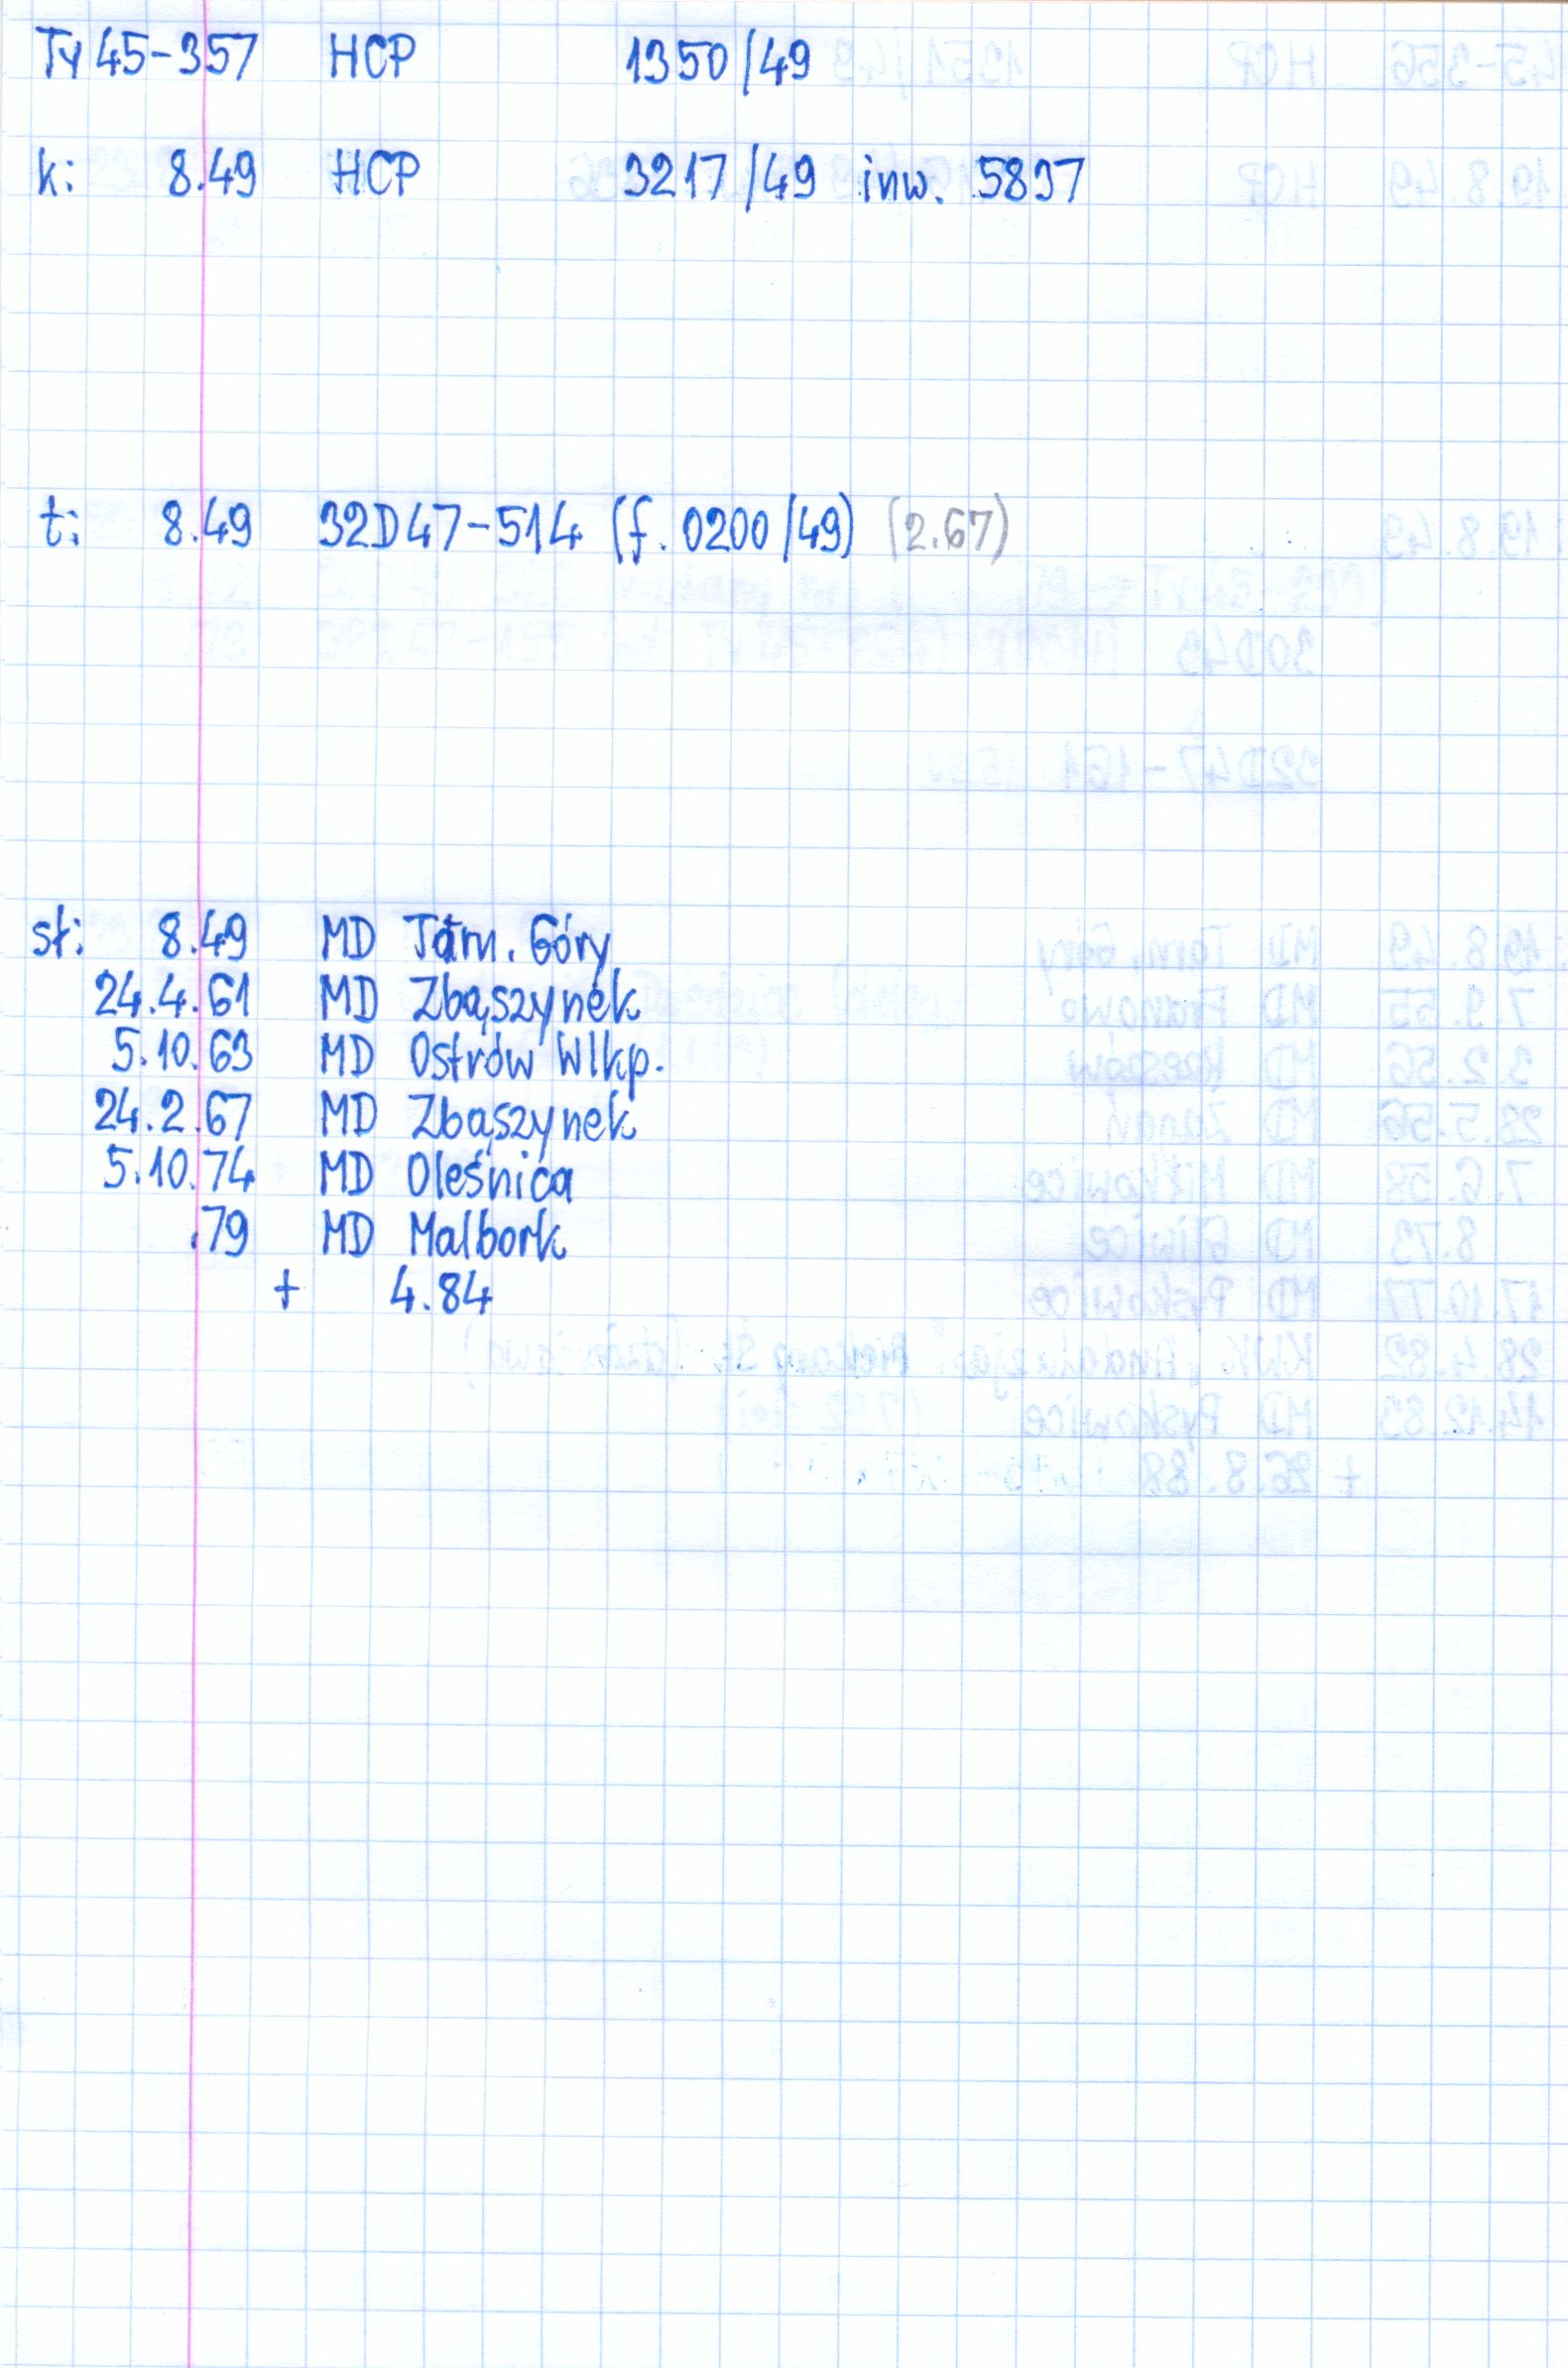 Ty45-357 HCP 1350/49
k: 8.49 HCP 3217/49 inw. 5837
t: 8.49 32D47-514 (f. 0200/49) (2.67)
st: 8.49 MD Tarn. Góry
24.4.61 MD Zbąszynek
5.10.63 MD Ostrów Wlkp.
24.2.67 MD Zbąszynek
5.10.74 MD Oleśnica
.79 MD Malbork
+ 4.84